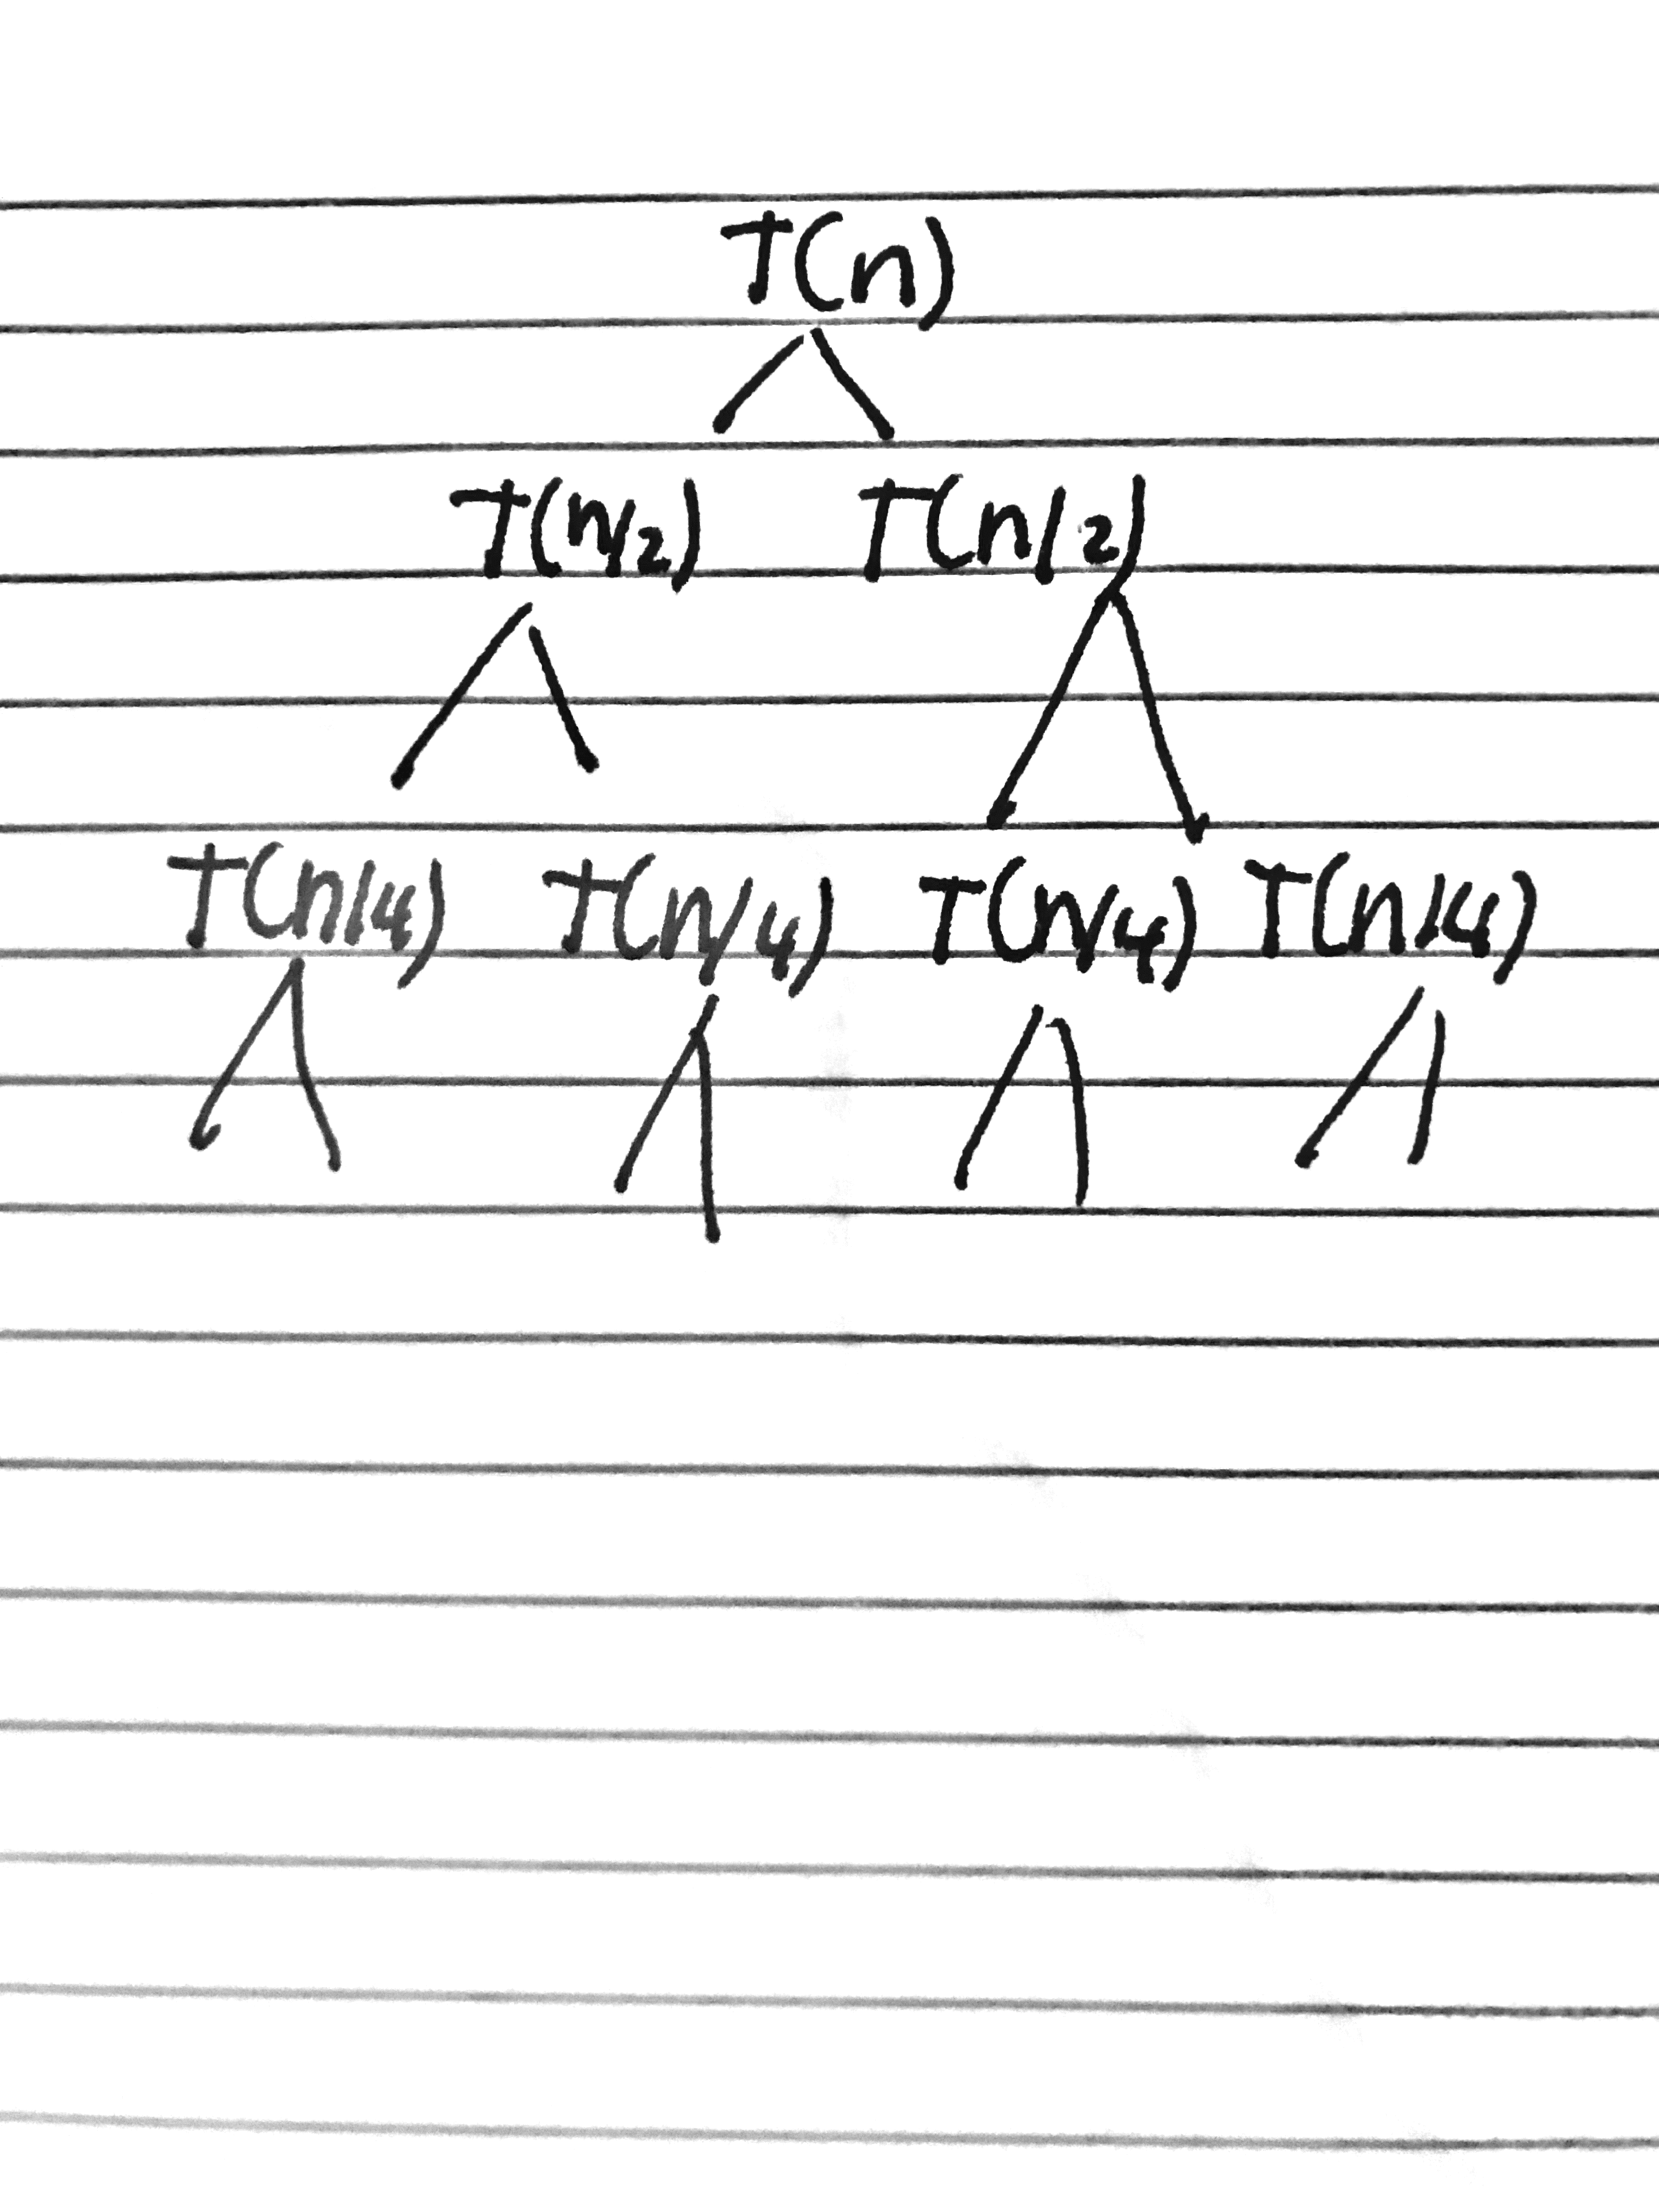 T(n)
T(n/2) T(n/2)
T(n/4) T(n/4) T(n/4) T(n/4)